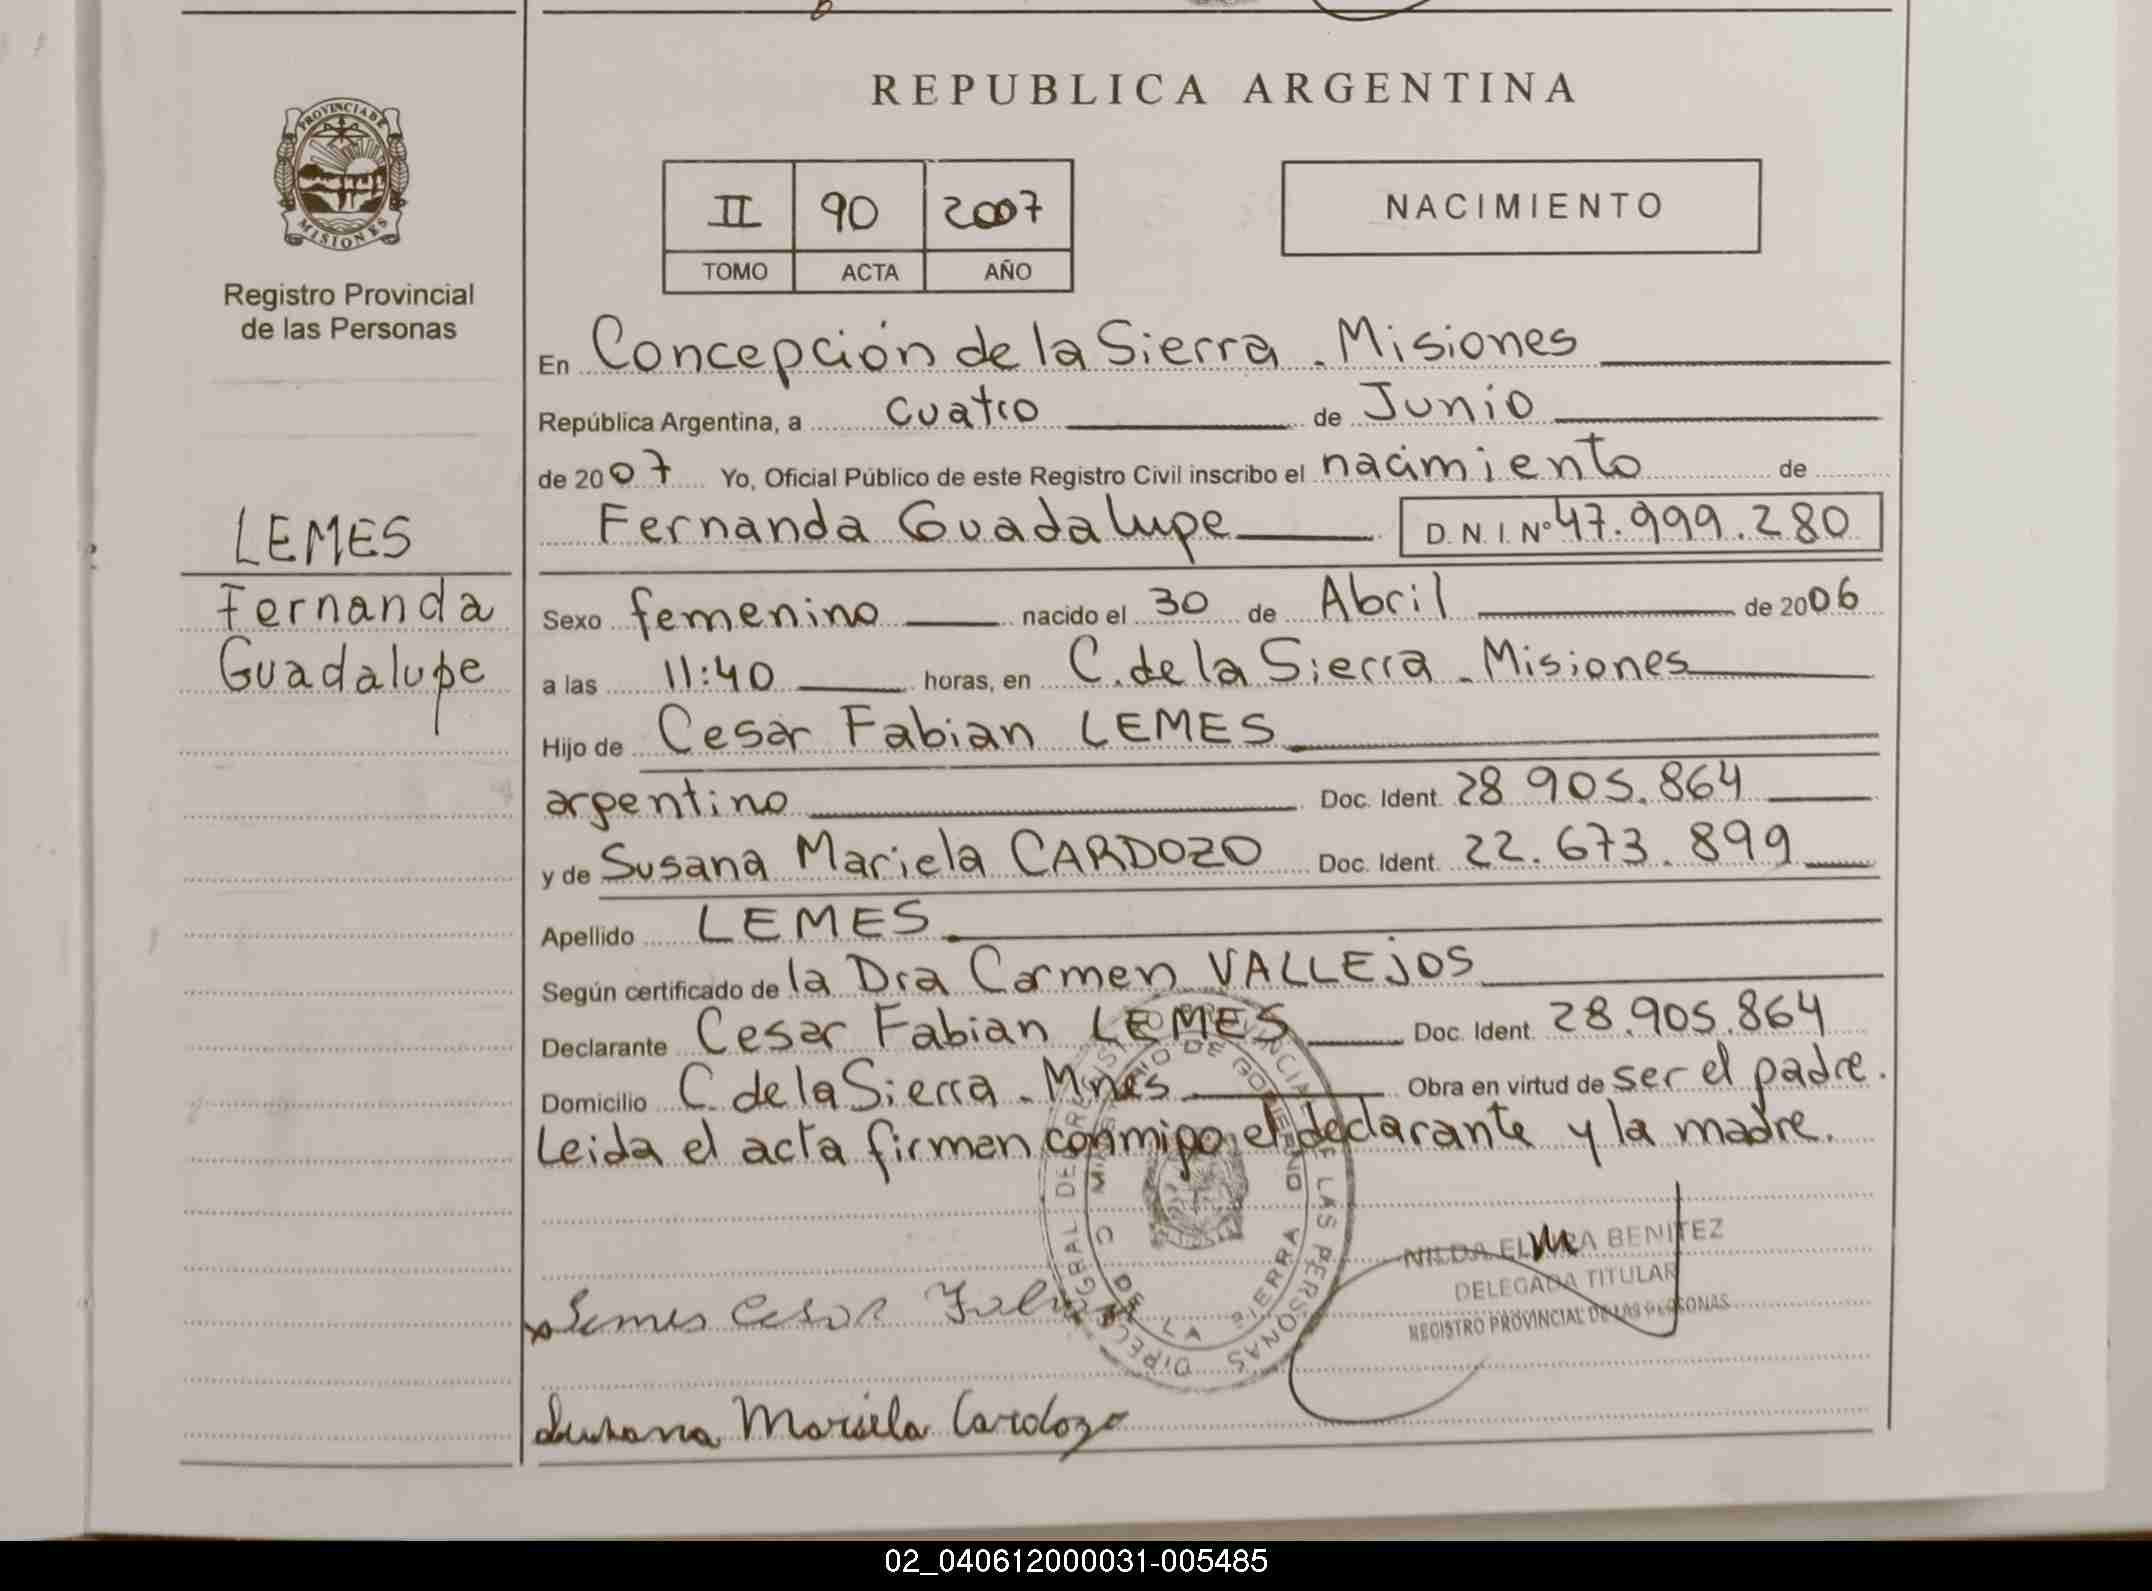 REPUBLICA ARGENTINA
PROVINCIA DE
MISIONES
Registro Provincial
de las Personas
II 90 2007
TOMO ACTA AÑO
NACIMIENTO
En Concepción de la Sierra - Misiones
República Argentina, a cuatro de Junio
de 2007 Yo, Oficial Público de este Registro Civil inscribo el nacimiento de
Fernanda Guadalupe D.N.I. Nº 47.999.280
LEMES
Fernanda
Guadalupe
Sexo femenino nacido el 30 de Abril de 2006
a las 11:40 horas, en C. de la Sierra - Misiones
Hijo de Cesar Fabian LEMES
argentino Doc. Ident. 28.905.864
y de Susana Mariela CARDOZO Doc. Ident. 22.673.899
Apellido LEMES
Según certificado de la Dra Carmen VALLEJOS
Declarante Cesar Fabian LEMES Doc. Ident. 28.905.864
Domicilio C. de la Sierra - Mnes Obra en virtud de ser el padre.
Leida el acta firman conmigo el declarante y la madre.
NILDA ELVIRA BENITEZ
DELEGADA TITULAR
REGISTRO PROVINCIAL DE LAS PERSONAS
Lemes Cesar Fabian
Susana Mariela Cardozo
02_040612000031-005485